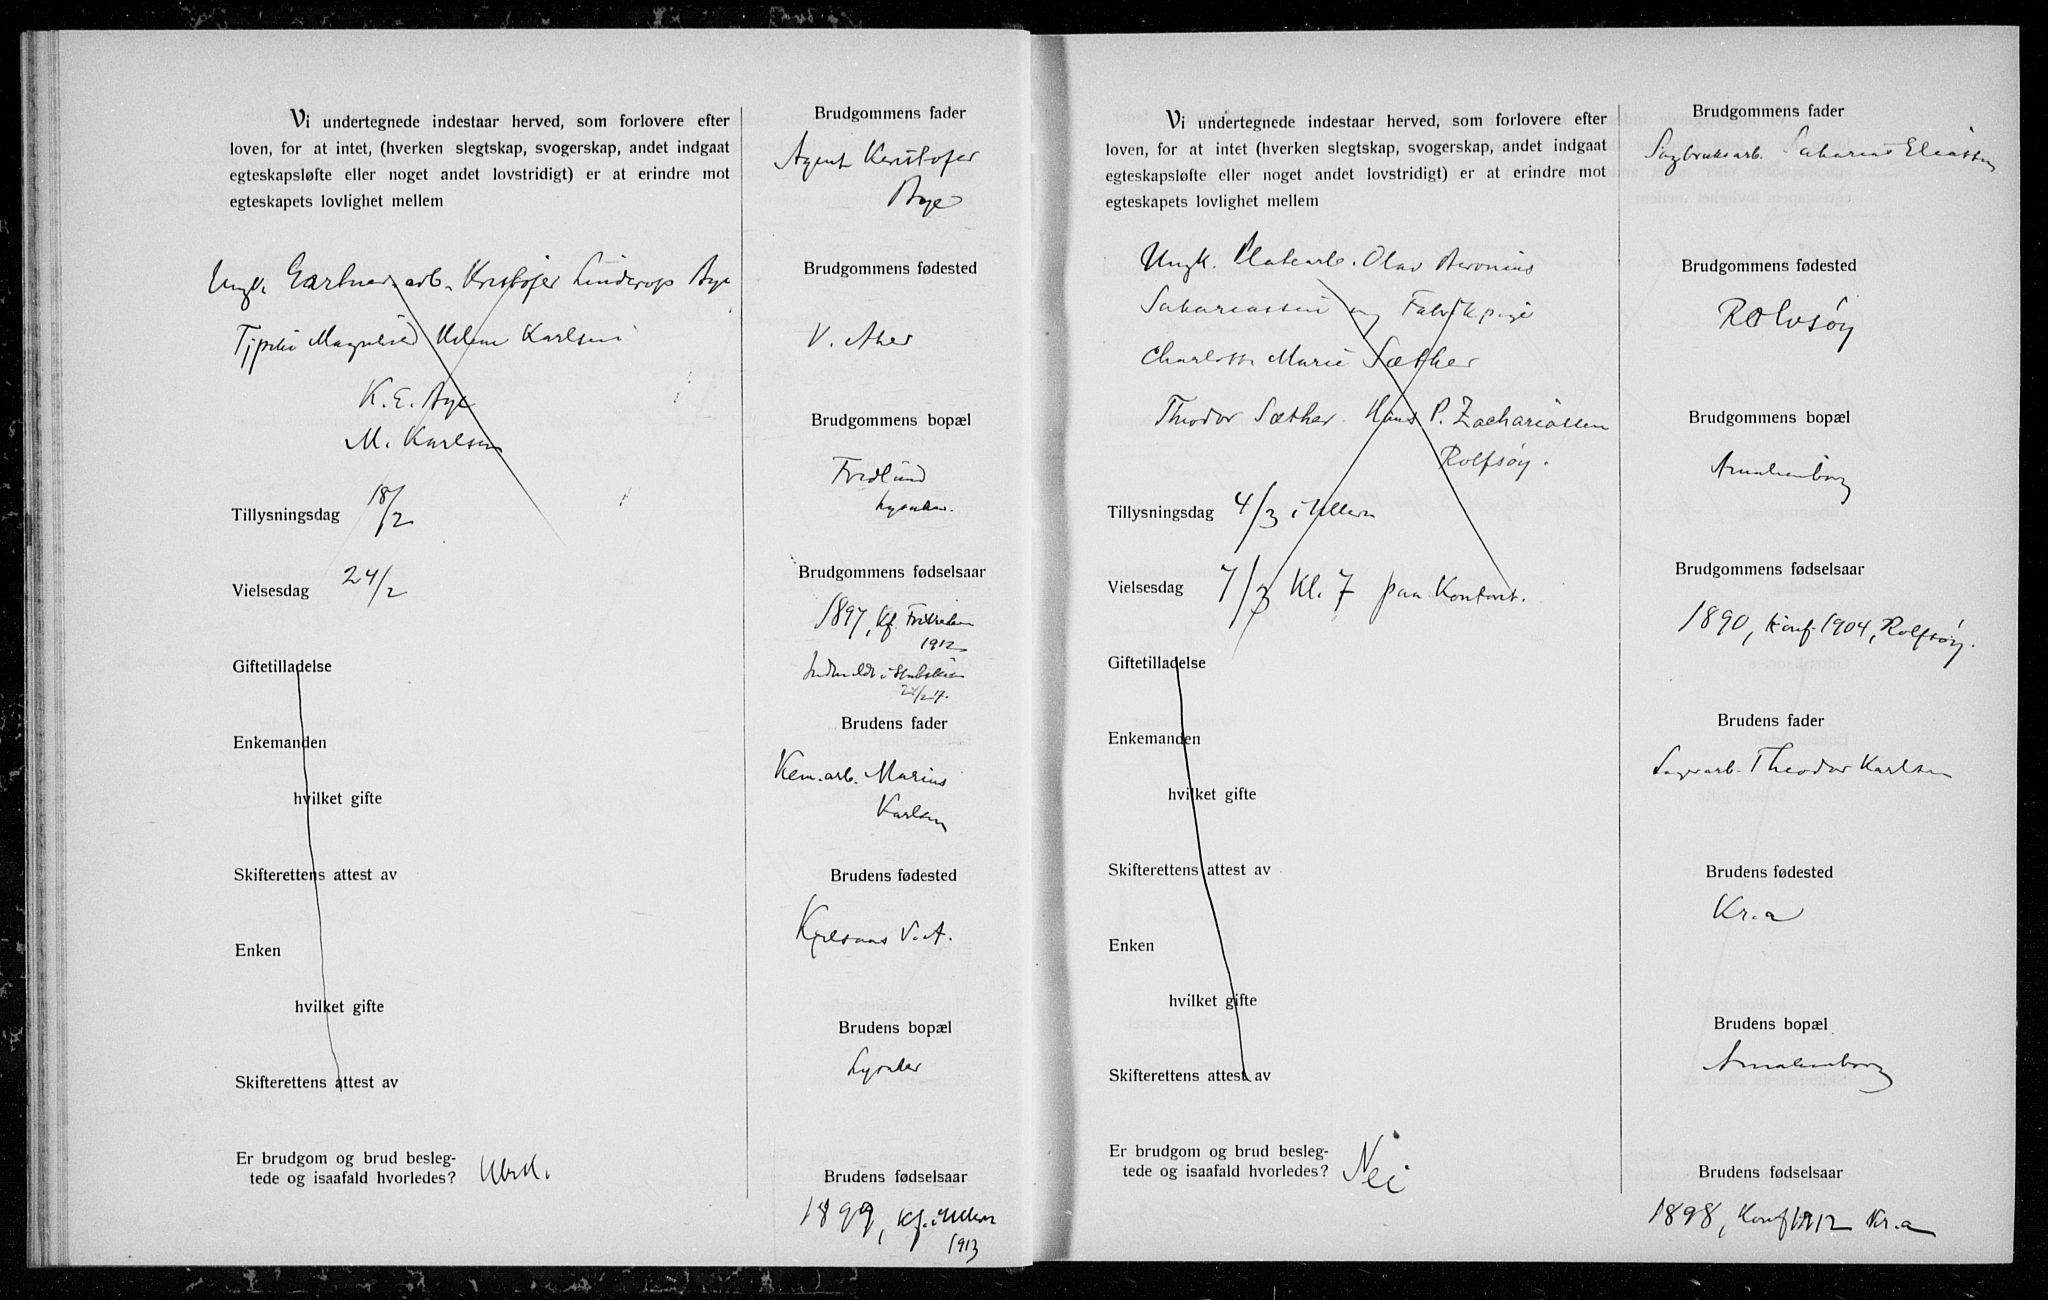 Vi undertegnede indestaar herved, som forlovere efter
loven, for at intet, (hverken slegtskap, svogerskap, andet indgaat
egteskapsløfte eller noget andet lovstridigt) er at erindre mot
egteskapets lovlighet mellem
Ungk. Gartner arb. Kristofer Linderop Aye
Magnhild Helene Karlsen
K. E. Aye
M. Karlsen
Tillysningsdag 18/2
Vielsesdag 24/2
Giftetilladelse
Enkemanden
hvilket gifte
Skifterettens attest av
Enken
hvilket gifte
Skifterettens attest av
Er brudgom og brud besleg-
tede og isaafald hvorledes? Ubsl.
Brudgommens fader
Agent Kristofer
Aye
Brudgommens fødested
V. Aker
Brudgommens bopæl
Fredlund
Lysaker.
Brudgommens fødselsaar
1897, Kf.
1912
Brudens fader
Kem. arb. Marius
Karlsen
Brudens fødested
V. A.
Brudens bopæl
Lysaker
Brudens fødselsaar
1899, Kf. i Ullern
1913
Vi undertegnede indestaar herved, som forlovere efter
loven, for at intet, (hverken slegtskap, svogerskap, andet indgaat
egteskapsløfte eller noget andet lovstridigt) er at erindre mot
egteskapets lovlighet mellem
Ungk. Platearb. Olav Aronius
Sakariassen og Fabrikpige
Charlotte Marie Sæther
Theodor Sæther. Hans P. Zachariassen
Rolfsøy.
Tillysningsdag 4/3 i Ullern
Vielsesdag 7/3 Kl. 7 paa Kontoret.
Giftetilladelse
Enkemanden
hvilket gifte
Skifterettens attest av
Enken
hvilket gifte
Skifterettens attest av
Er brudgom og brud besleg-
tede og isaafald hvorledes? Nei
Brudgommens fader
Sagbruksarb. Sakarias Eliassen
Brudgommens fødested
Rolvsøy
Brudgommens bopæl
Amalienborg
Brudgommens fødselsaar
1890, Konf. 1904, Rolfsøy.
Brudens fader
Theodor Karlsen
Brudens fødested
Kr.a
Brudens bopæl
Amalienborg
Brudens fødselsaar
1898, Konf 1912 Kr.a